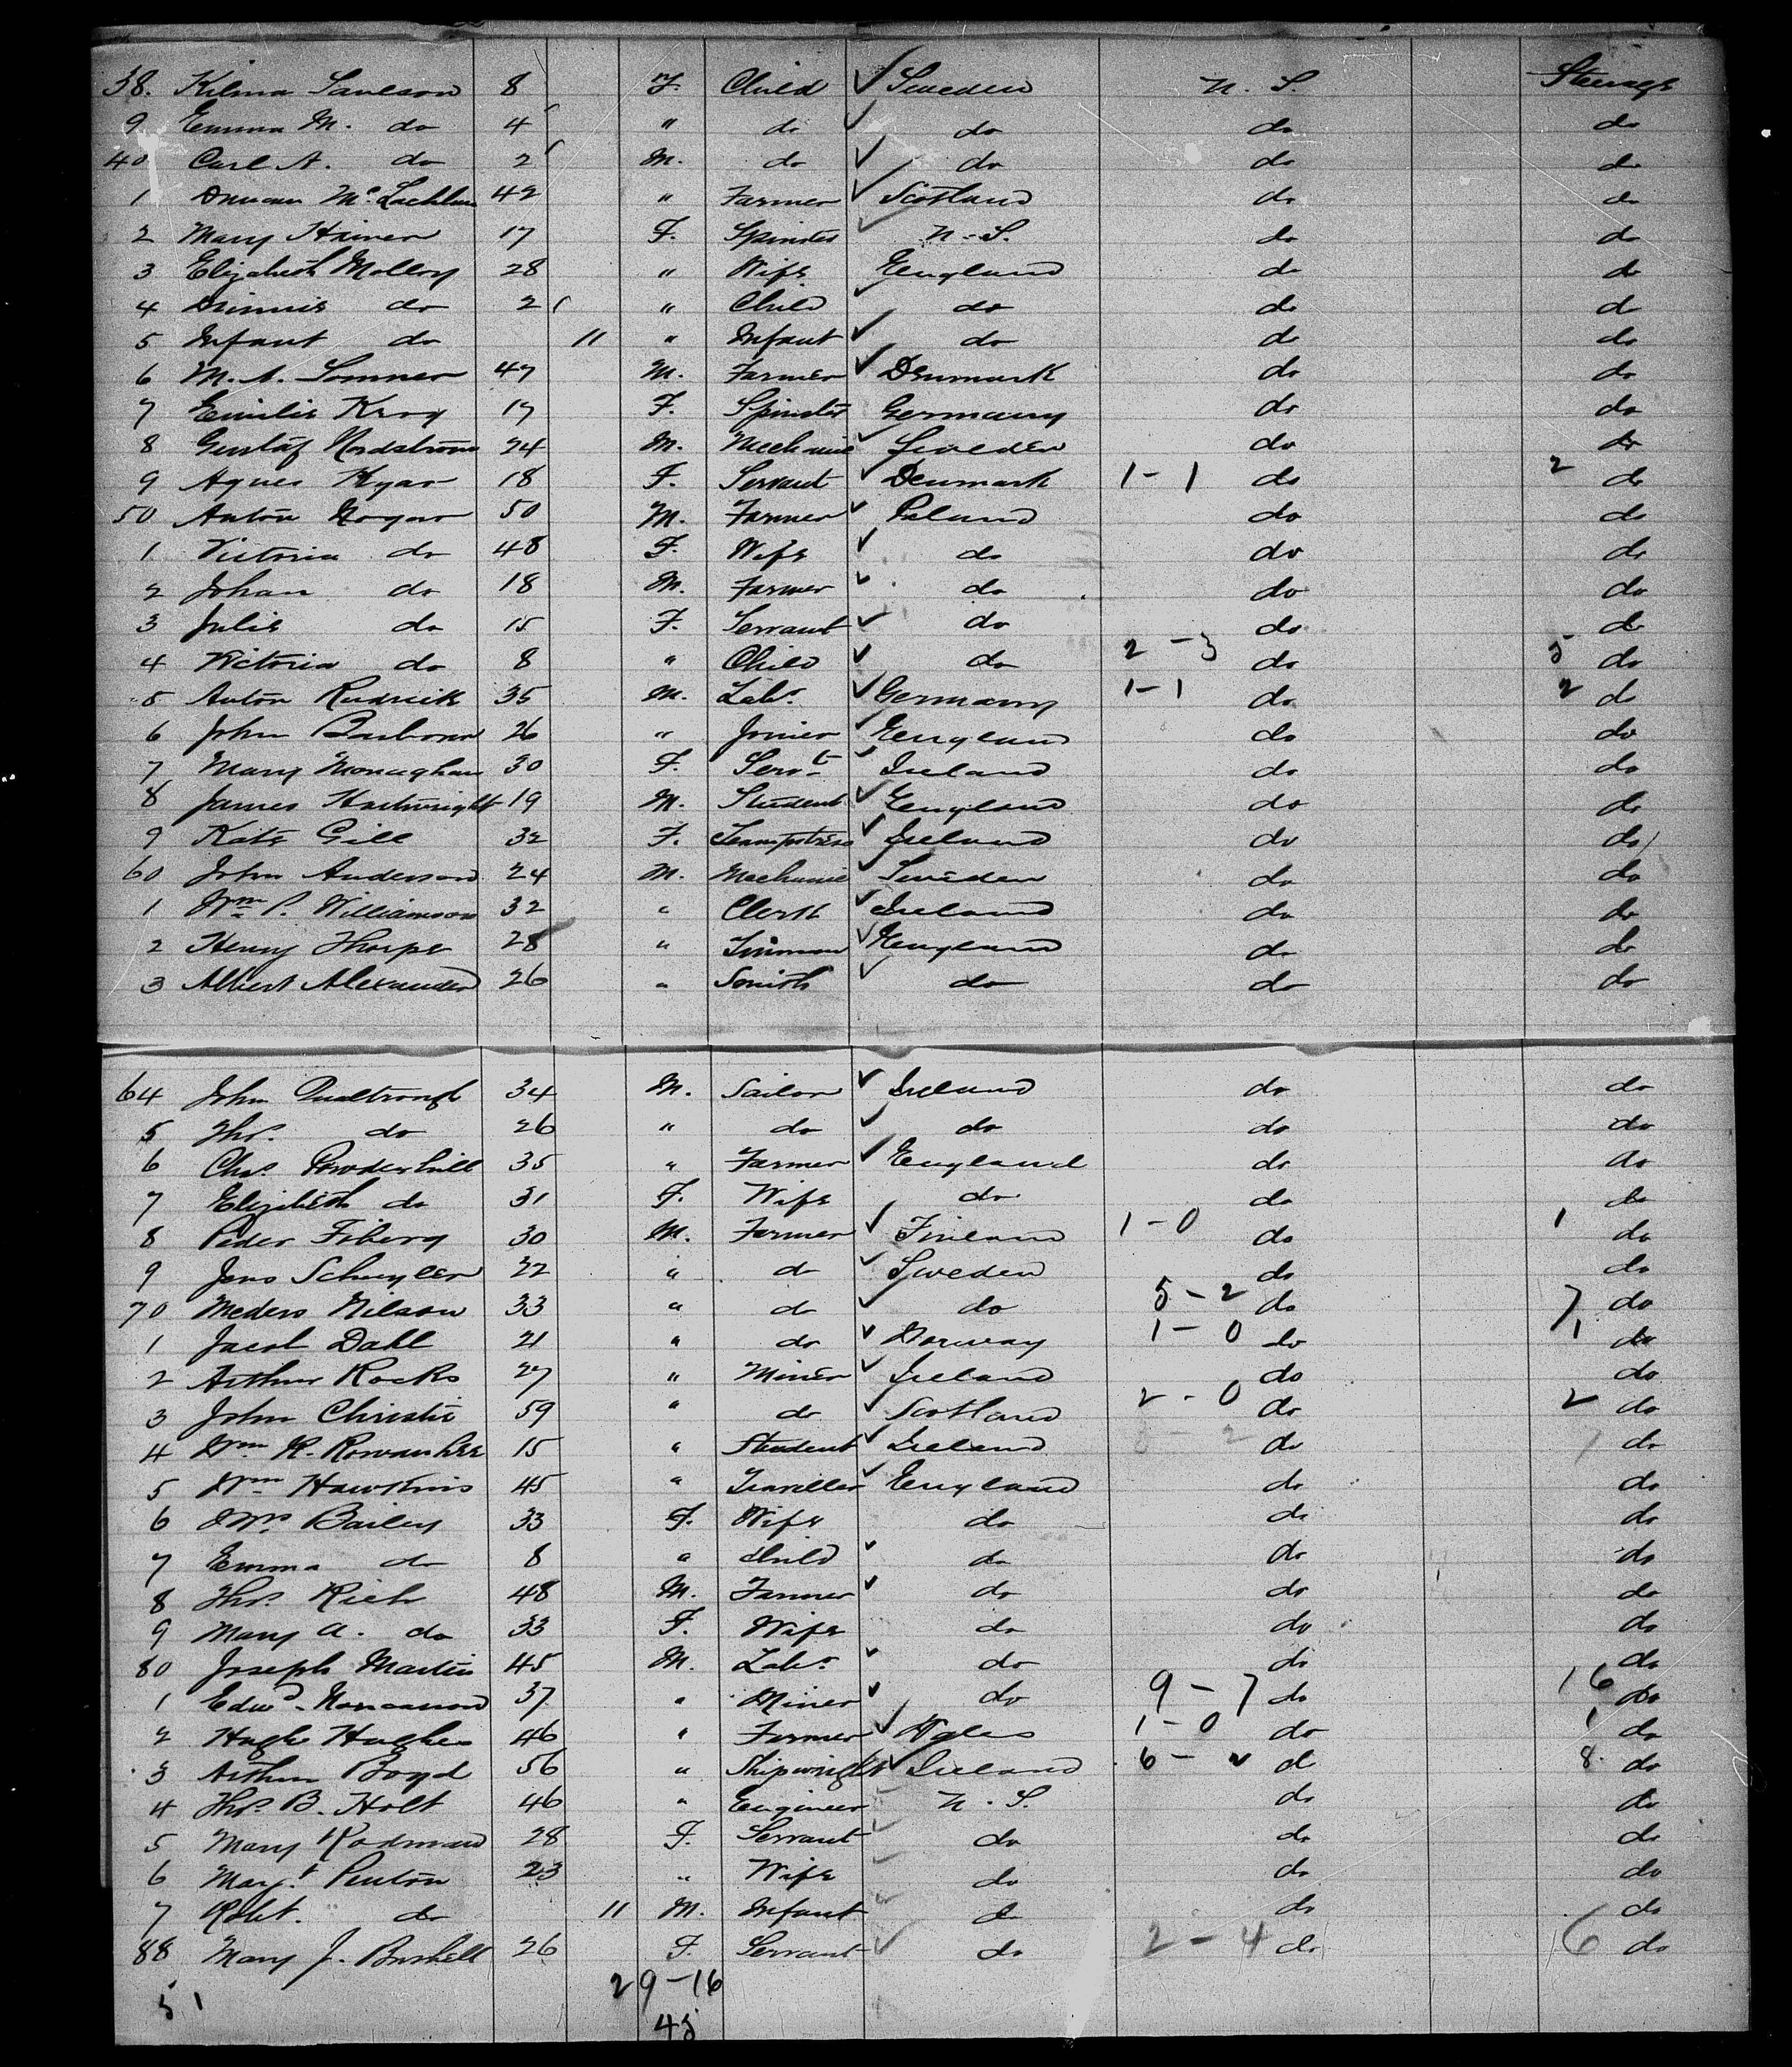 38. Kilma Paulson 8 F. Child ✓ Sweden U. S. Steerage
9 Emma M. do 4 " do ✓ do do do
40 Carl A. do 2 M. do ✓ do do do
1 Duncan McLachlan 42 " Farmer ✓ Scotland do do
2 Mary Hainer 17 F. Spinster ✓ U. S. do do
3 Elizabeth Molloy 28 " Wife England do do
4 do 2 " Child ✓ do do do
5 Infant do 11 " Infant ✓ do do do
6 M. A. Sommer 47 M. Farmer ✓ Denmark do do
7 Emilie Krog 17 F. Spinster Germany do do
8 Gustaf Nordstrom 24 M. Mechanic ✓ Sweden do do
9 Agnes Kyar 18 F. Servant ✓ Denmark 1-1 do 2 do
50 Anton 50 M. Farmer ✓ Poland do do
1 Victoria do 48 F. Wife ✓ do do do
2 Johan do 18 M. Farmer ✓ do do do
3 Julie do 15 F. Servant ✓ do do do
4 Victoria do 8 " Child ✓ do 2-3 do 5 do
5 Anton Rudnick 35 M. Labr. ✓ Germany 1-1 do 2 do
6 John 26 " Joiner ✓ England do do
7 Mary Monaghan 30 F. Servt. ✓ Ireland do do
8 James Hartwright 19 M. Student ✓ England do do
9 Kate Gill 32 F. Seampstress ✓ Ireland do do
60 John Anderson 24 M. Mechanic ✓ Sweden do do
1 Wm P. Williamson 32 " Clerk ✓ Ireland do do
2 Henry Thorpe 28 " Tinman ✓ England do do
3 Albert Alexander 26 " Smith ✓ do do do
64 John Qualtrough 34 M. Sailor ✓ Ireland do do
5 Thos. do 26 " do ✓ do do do
6 Chas. Powderhill 35 " Farmer ✓ England do do
7 Elizabeth do 31 F. Wife do do do
8 Peder Fiberg 30 M. Farmer ✓ Finland 1-0 do 1 do
9 Jens Schuyler 22 " do ✓ Sweden do do
70 Meders Nilson 33 " do ✓ do 5-2 do 7 do
1 Jacob Dahl 21 " do ✓ Norway 1-0 do 1 do
2 Arthur Rocks 27 " Miner ✓ Ireland do do
3 John Christie 59 " do ✓ Scotland 2-0 do 2 do
4 Wm R. 15 " Student ✓ Ireland do do
5 Wm Hawkins 45 " Traveller ✓ England do do
6 Mrs. Bailey 33 F. Wife do do do
7 Emma do 8 " Child ✓ do do do
8 Thos. Rich 48 M. Farmer ✓ do do do
9 Mary A. do 33 F. Wife do do do
80 Joseph Martin 45 M. Labr. ✓ do do do
1 Edwd. 37 " Miner ✓ do 9-7 do 16 do
2 Hugh Hughes 46 " Farmer ✓ Wales 1-0 do 1 do
3 Arthur Boyd 56 " Shipwright ✓ Ireland 6-2 do 8 do
4 Thos. B. Holt 46 " Engineer U. S. do do
5 Mary Rodman 28 F. Servant ✓ do do do
6 Margt. Penton 23 " Wife do do do
7 Robt. do 11 M. Infant do do do
88 Mary J. Bushell 26 F. Servant ✓ do 2-4 do 6 do
51 29-16
45